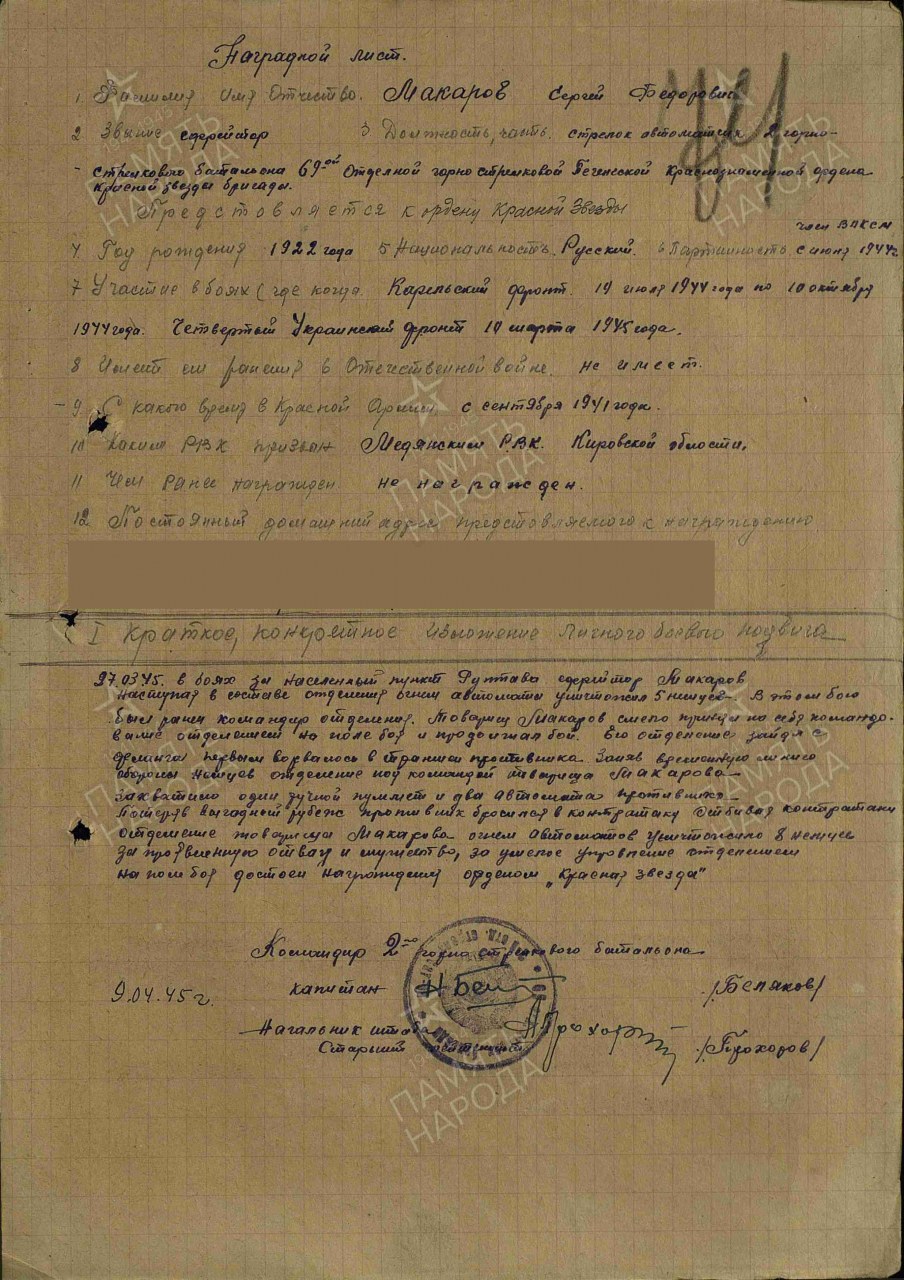 Наградной лист.
1. Фамилия Имя Отчество. Макаров Сергей Федорович
2 Звание ефрейтор 3 Должность, часть. стрелок автоматчик 2 горно-
стрелкового батальона 69ой Отделной горно стрелковой Печенской Краснознаменной ордена
Красной звезды бригады.
Представляется к ордену Красной Звезды
член ВЛКСМ
4 Год рождения 1922 года 5 Национальность. Русский. 6 Партийность с июня 1944г.
7 Участие в боях (где когда. Карельский фронт. 19 июля 1944 года по 10 октября
1944 года. Четвертый Украинский фронт 10 марта 1945 года.
8 Имеет ли ранения в Отечественной войне. не имеет.
9 С какого время в Красной Армии с сентября 1941 года.
10 Каким РВК призван Медянским Р.В.К. Кировской области.
11 Чем Ранее награжден. не награжден.
12 Постоянный домашний адрес представляемого к награждению
I Краткое, конкретное изложение личного боевого подвига
27.03.45. в боях за населенный пункт Рутава ефрейтор Макаров
наступая в составе отделения огнем автомата уничтожил 5 немцев. В этом бою
был ранен командир отделения. Товарищ Макаров смело принял на себя командо-
вание отделением на поле боя и продолжал бой. Его отделение зайдя с
фланга первым ворвалось в траншеи противника. Заняв временную линию
обороны немцев отделение под командой товарища Макарова
захватило один ручной пулемет и два автомата противника
Потеряв выгодный рубеж противник бросился в контратаку Отбивая контратаки
отделение товарища Макарова огнем автоматов уничтожило 8 немцев
За проявленную отвагу и мужество, за умелое управление отделением
на поле боя достоен награждения орденом „Красная звезда"
Командир 2го горно стрелкового батальона
9.04.45 г. капитан /Беляков/
Начальник штаба
Старший лейтенант /Прохоров/
ПАМЯТЬ НАРОДА